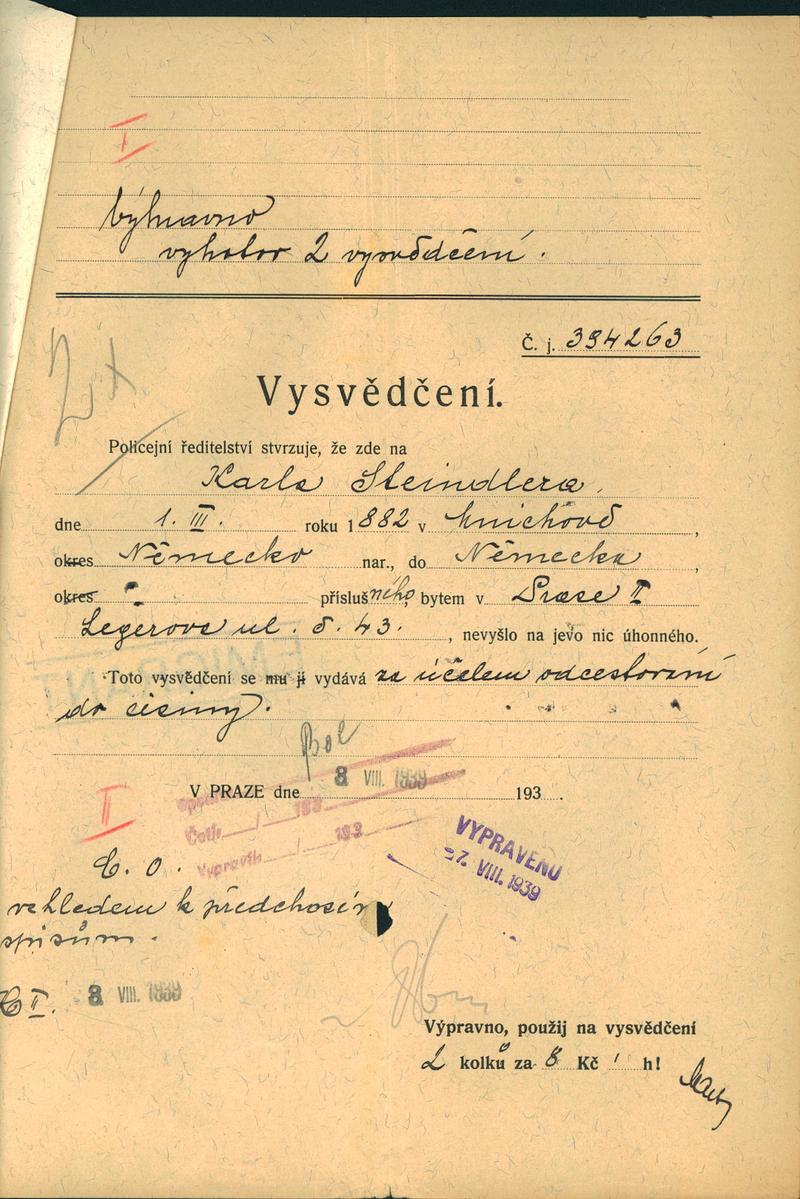 I
Výhravno
vyhotov 2 vysvědčení.
Č. j. 394263
2x
Vysvědčení.
Policejní ředitelství stvrzuje, že zde na
Karla Steindlera,
dne 1. III. roku 1882 v Mnichově,
okres Německo nar., do Německa,
okres " příslušného, bytem v Praze II
Legerova ul. č. 43., nevyšlo na jevo nic úhonného.
EMIGRANT
Toto vysvědčení se mu jí vydává za účelem odcestování
do ciziny.
V PRAZE dne 8 VIII. 1939 193 .
II
Opsáno
Četl: / 193
Vypravil: / 193
VYPRAVENO
-7. VIII. 1939
E. o.
vzhledem k předchozím
spisům.
II. 8 VIII. 1939
Výpravno, použij na vysvědčení
2 kolků za 8 Kč h!